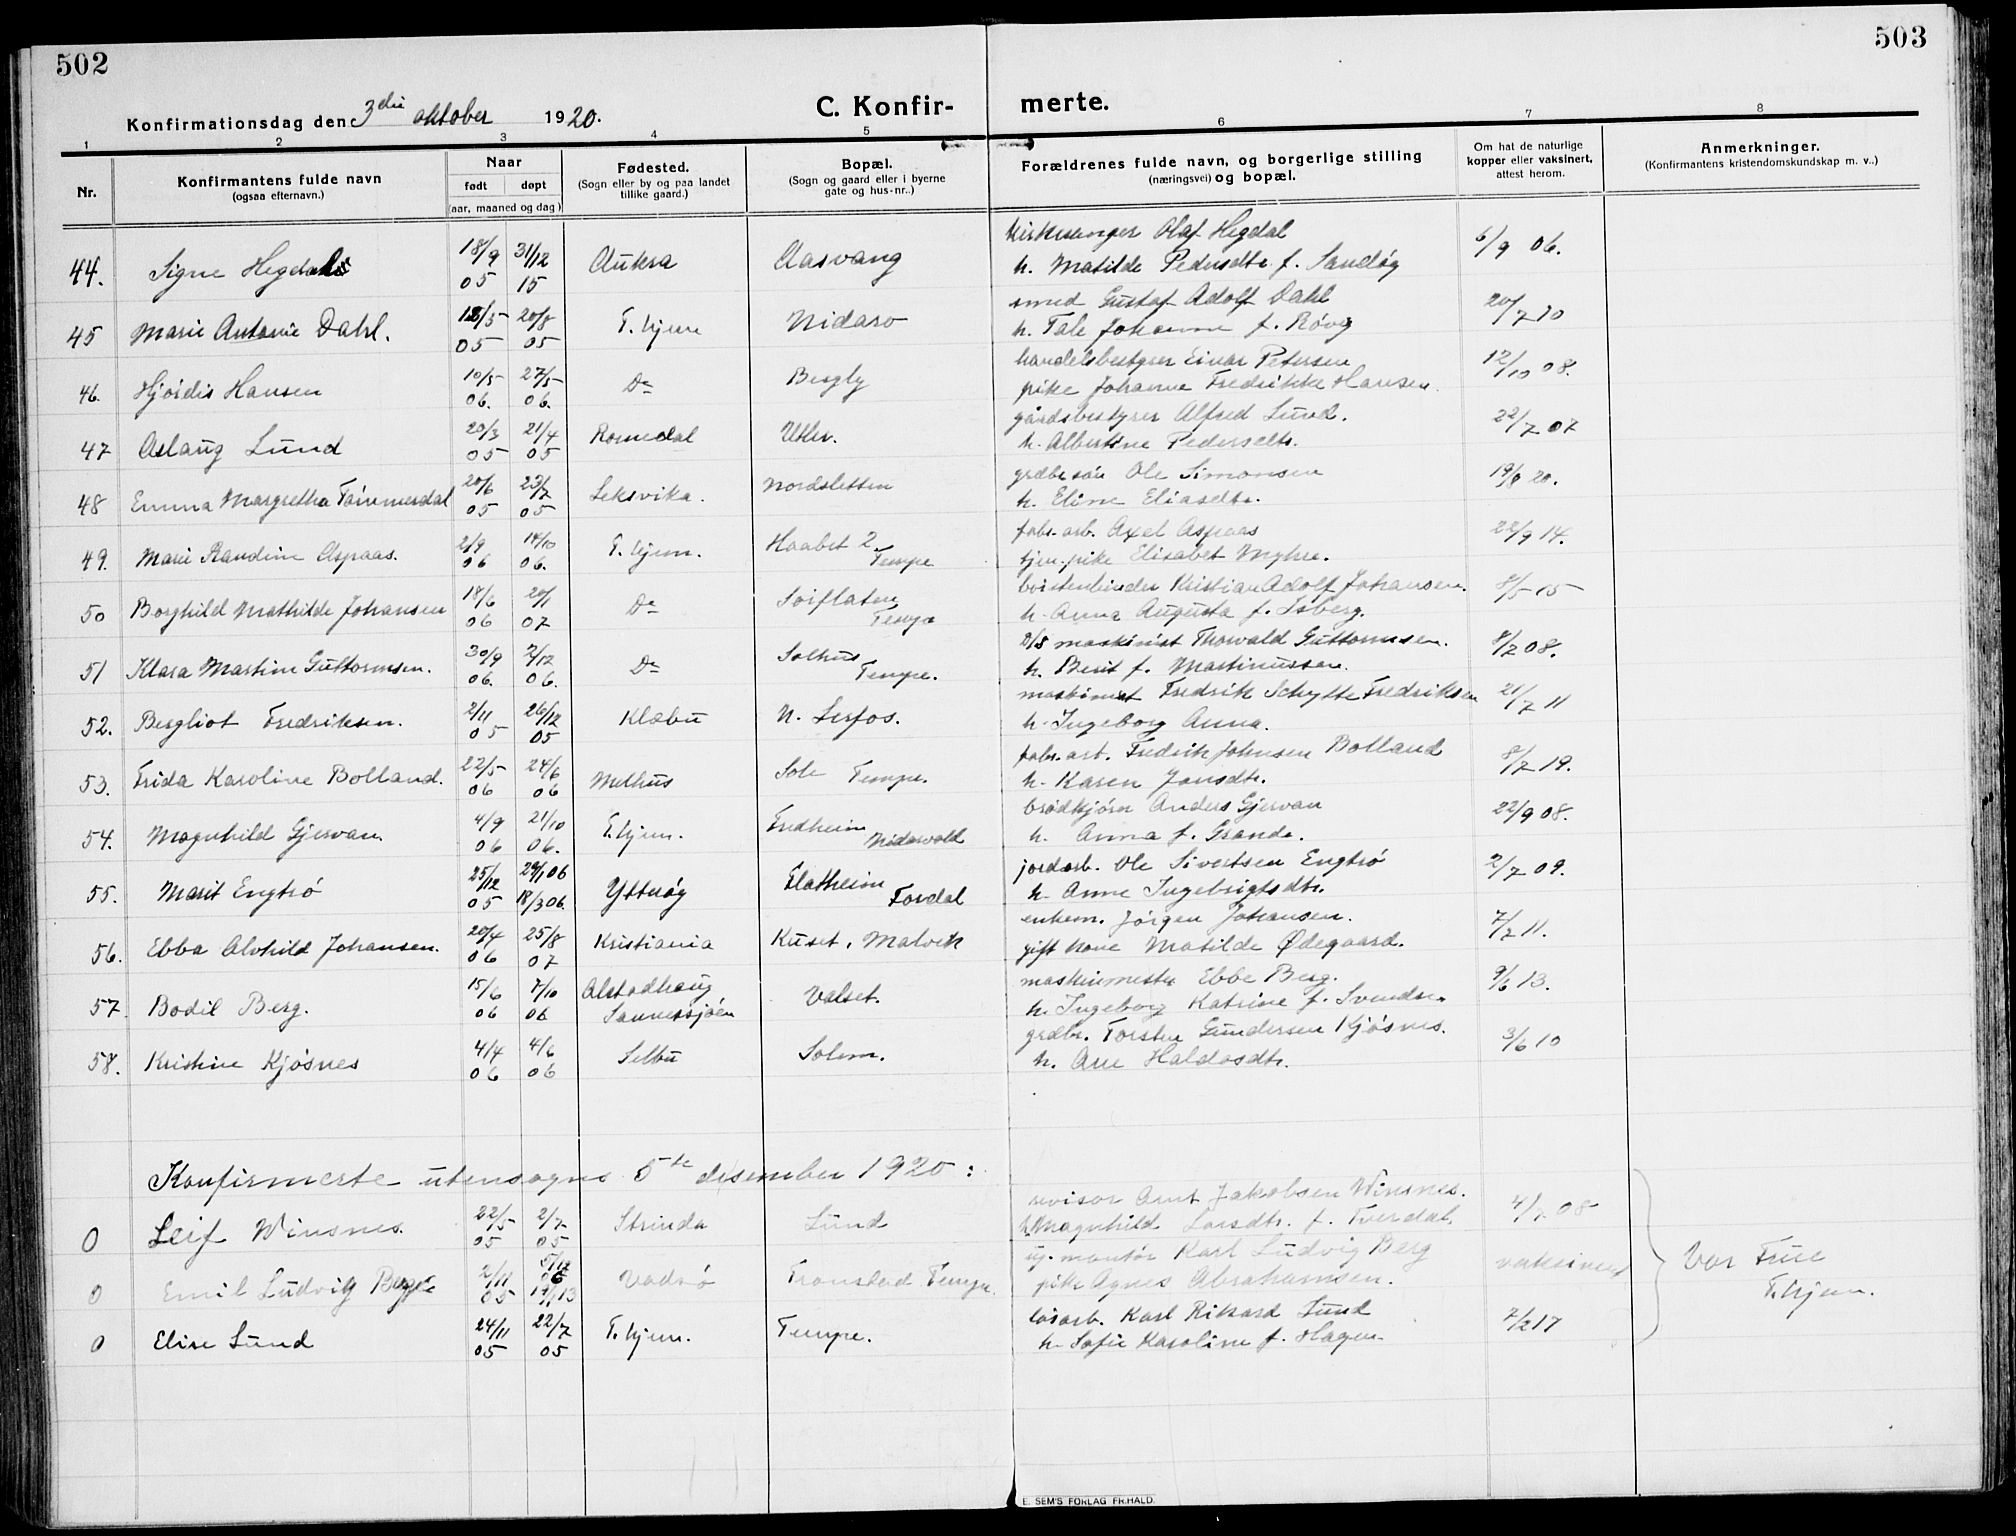 502
503
Konfirmationsdag den 3die oktober 1920.
C. Konfirmerte.
1 2 3 4 5 6 7 8
Nr.
Konfirmantens fulde navn
(ogsaa efternavn.)
Naar
født døpt
(aar, maaned og dag)
Fødested.
(Sogn eller by og paa landet
tillike gaard.)
Bopæl.
(Sogn og gaard eller i byerne
gate og hus-nr..)
Forældrenes fulde navn, og borgerlige stilling
(næringsvei) og bopæl.
Om hat de naturlige
kopper eller vaksinert,
attest herom.
Anmerkninger.
(Konfirmantens kristendomskundskap m. v..)
44. Signe Hegdahl 18/9 05 31/12 15 Aukra Aasvang kirkesanger Olaf Hegdal 6/9 06.
h. Matilde Pedersdtr. f. Sandøy
45 Marie Antonie Dahl. 18/5 05 20/8 05 T.hjem Nidarø smed Gustaf Adolf Dahl 20/7 10
h. Tale Johanne f. Røvig
46. Hjørdis Hansen 10/5 06. 27/5 06. Do Bergly handelsbestyrer Einar Petersen 12/10 08.
pike Johanne Fredrikke Hansen.
47 Aslaug Lund 20/3 05 21/4 05 Romedal Utler. gårdsbestyrer Alfred Lund. 22/7 07
h. Albertine Pedersdtr.
48 Emma Margretha Tømmerdal 20/6 05 23/7 05 Leksvika. Nordsletten Ole Simonsen 19/6 20.
h. Eline Eliasdtr.
49. Marie Randine Aspaas. 2/9 06 14/10 06. T.hjem. Haabet 2 Tempe fabr. arb. Axel Aspaas 22/9 14.
tjen. pike Elisabet Myhre.
50 Borghild Mathilde Johansen 18/6 06 20/1 07 Do Soiflaten Tempe børstenbinder Kristian Adolf Johansen. 8/5 15
h. Anna Augusta f. Isberg.
51 Klara Martine Guttormsen. 30/9 06. 2/12 06. Do Solhus Tempe. D/S maskinist Thorvald Guttormsen. 8/2 08.
h. Berit f. Martinussen.
52. Bergliot Fredriksen. 2/11 05 26/12 05 Klæbu N. Lerfos. maskinist Fredrik Schytte Fredriksen 21/7 11
h. Ingeborg Anna.
53. Frida Karoline Bolland. 22/5 06 24/6 06 Melhus Sole Tempe. fabr. arb. Fredrik Johnsen Bolland 8/7 19.
h. Karen Jonsdtr.
54. Magnhild Gjervan. 4/9 06 21/10 06. T.hjem. Fredheim Nidarvold brødkjører Anders Gjervan 22/9 08.
h. Anna f. Grande.
55. Marit Engtrø 25/12 05 29/1 06 18/3 06. Ytterøy Flatheim Fordal jordarb. Ole Sivertsen Engtrø 2/7 09.
h. Anne Ingebrigtsdtr.
56. Ebba Alvhild Johansen. 20/4 06 25/8 07 Kristiania Kuset, Malvik enkem. Jørgen Johansen. 7/7 11.
gift kone Matilde Ødegaard.
57. Bodil Berg. 15/6 06 7/10 06 Alstadhaug Sannessjøen Valset. maskinmester Ebbe Berg. 9/6 13.
h. Ingeborg Katrine f. Svendsen
58. Kristine Kjøsnes 4/4 06 4/6 06 Selbu Solem. Torsten Gundersen Kjøsnes. 3/6 10
h. Ane Haldosdtr.
Konfirmerte utensogns 5te desember 1920:
0 Leif Winsnes. 22/5 05 2/7 05 Strinda Lund revisor Arnt Jakobsen Winsnes. 4/7 08
h. Magnhild Larsdtr. f. Tverdal.
0 Emil Ludvig Berg 2/11 05 Vadsø Tronstad Tempe. ug. montør Karl Ludvig Berg vaksinert
pike Agnes Abrahamsen.
0 Elise Lund 24/11 05 22/7 05 T.hjem. Tempe. løsarb. Karl Rikard Lund 7/2 17
h. Sofie Karoline f. Hagen
Vor Frue
T.hjem.
E. SEM'S FORLAG FR.HALD.